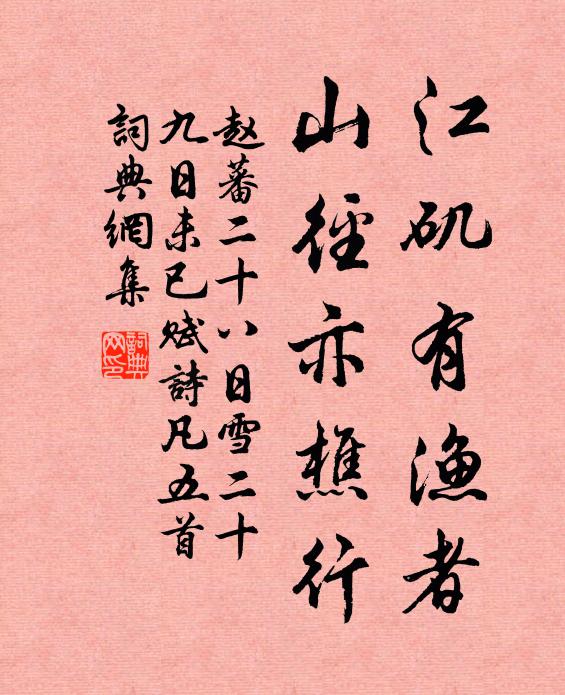 江矶有渔者
山徑亦樵行
赵蕃二十八日雪二十
九日未已賦詩凡五首
詞典網集
詞典網印